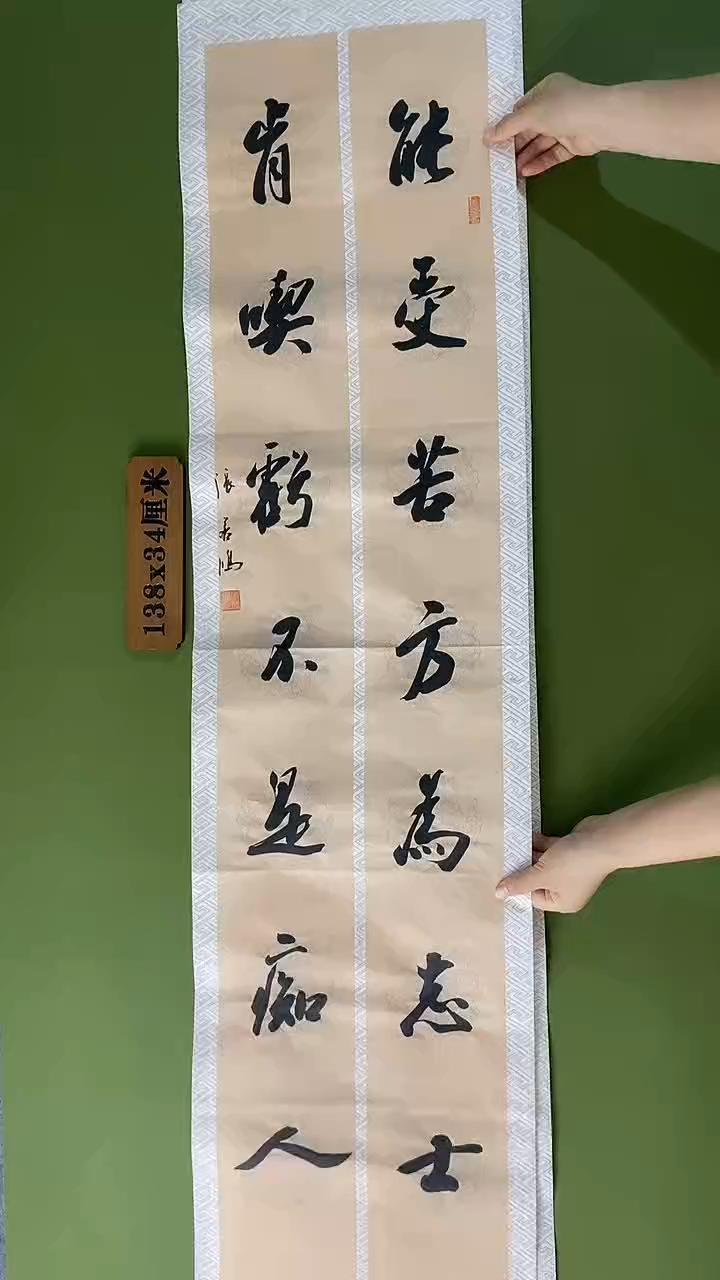 能受苦方為志士
肯喫虧不是痴人
張若鴻
138x34厘米